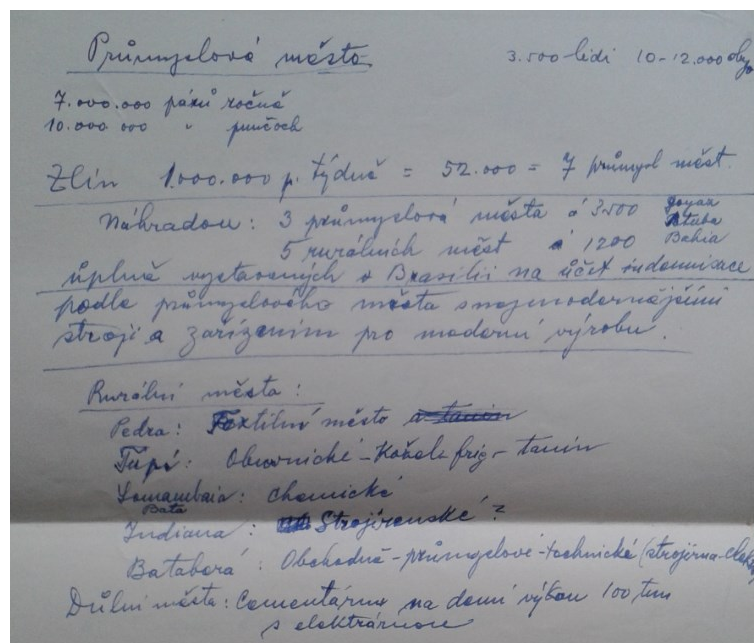 Průmyslová města 3.500 lidí 10-12.000 oby
7.000.000 párů ročně
10.000 000 " punčoch
Zlín 1.000.000 p. týdně = 52.000 = 7 průmysl měst.
Náhradou: 3 průmyslová města á 3500 Goyaz
5 rurálních měst á 1200 Bahia
úplně vystavených v Brasilii na účet indemnisace
podle průmyslového města s nejmodernějšími
stroji a zařízením pro moderní výrobu.
Rurální města:
Pedra: Textilní město
Tupí: Obuvnické - Koželu frig - tanin
Samambaia: Chemické
Bata
Indiana: Strojírenské?
Bataborá: Obchodně-průmyslové-technické (strojírna-
Důlní města: Cementárna na denní výkon 100 tun
s elektrárnou